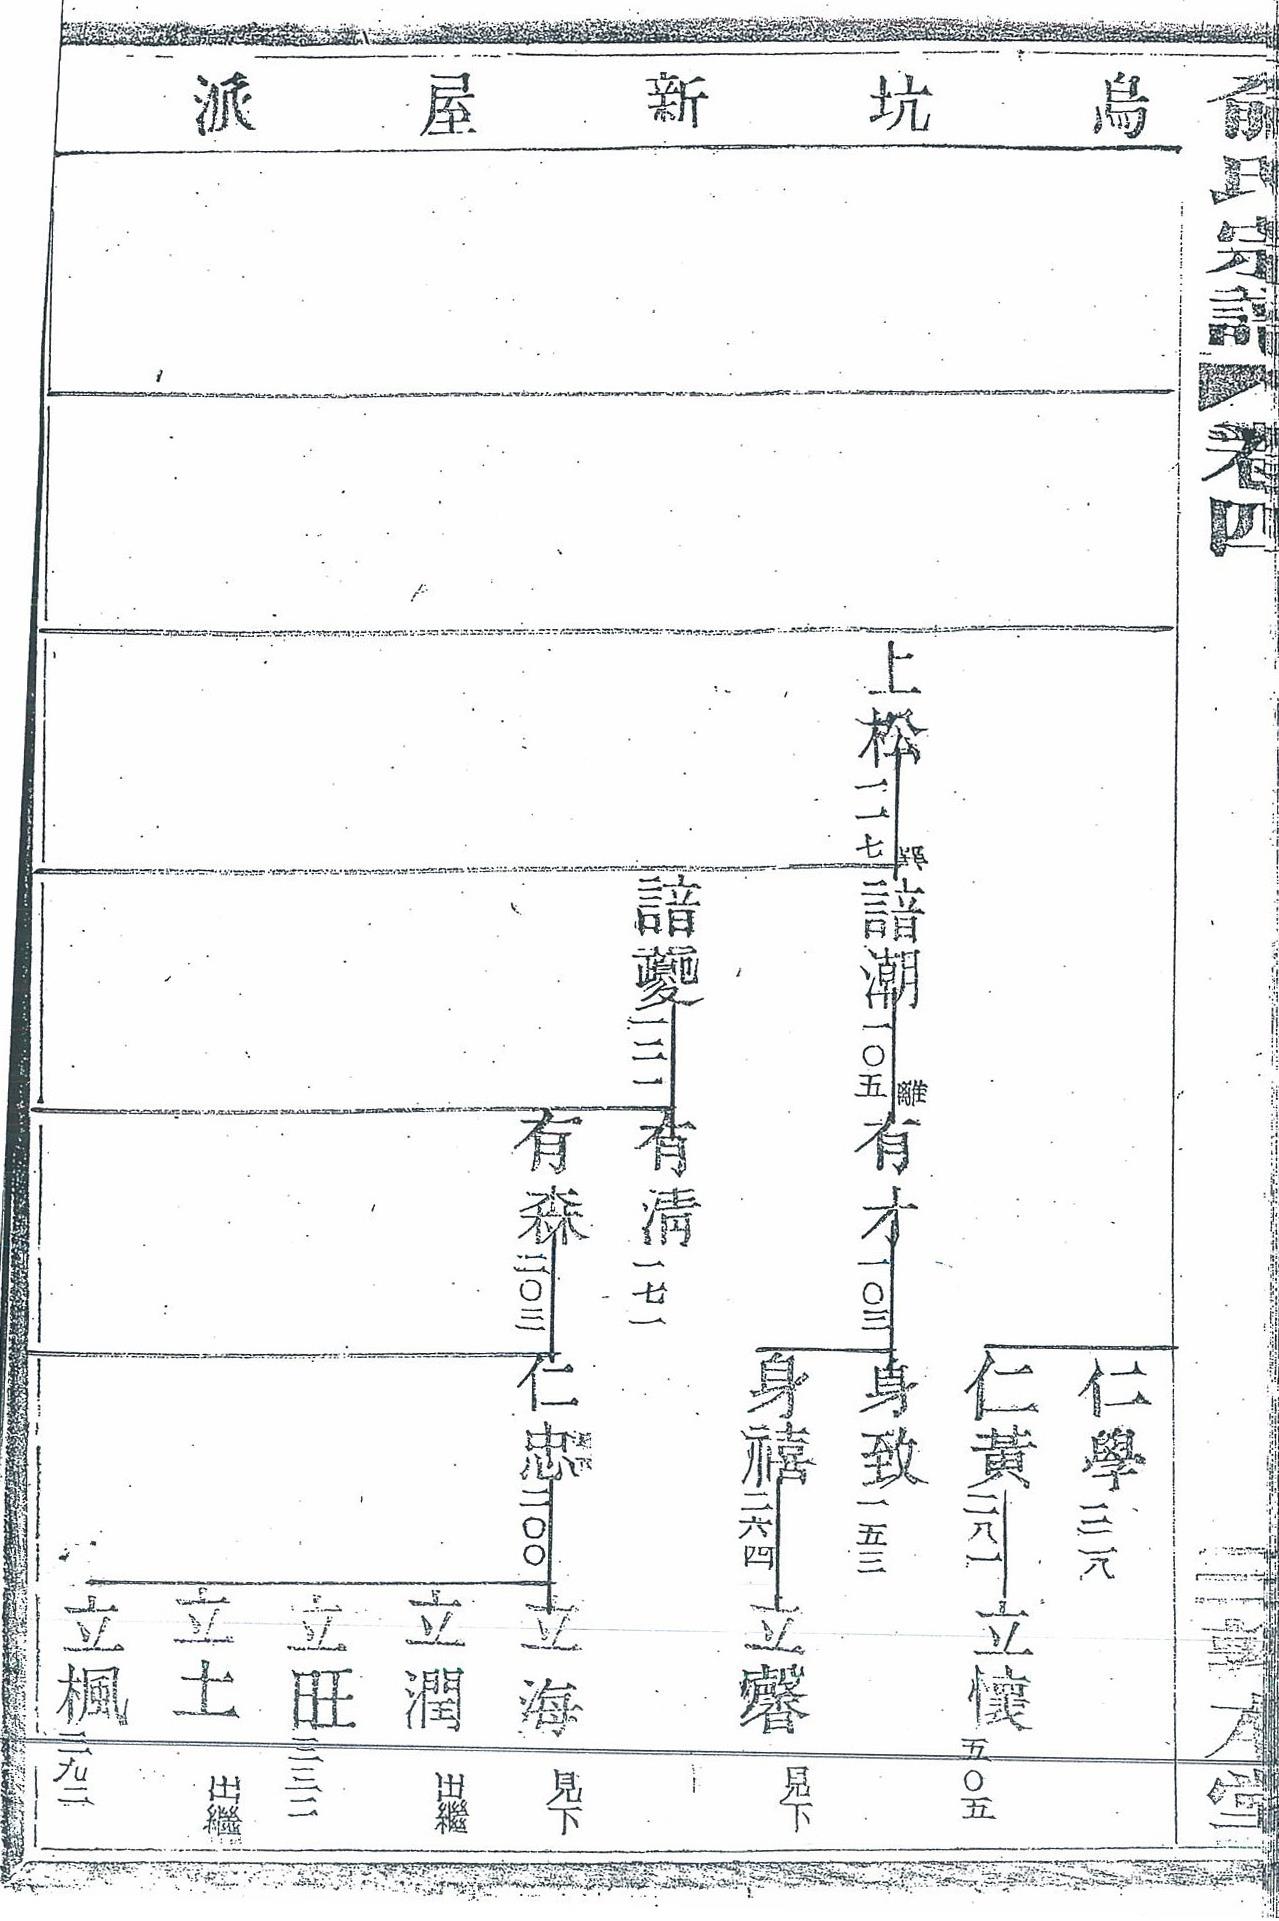 俞氏宗譜
卷四
烏坑新屋派
上松 一一七
諳潮 一〇五
諳夔 一二一
離
有才 一〇三
有清 一七一
有森 二〇三
仁學 三一八
仁黃 二八一
身致 一五三
身禧 二六四
仁忠 二〇〇
立懷 五〇五
立馨 見下
立海 見下
立潤 出繼
立旺 三三二
立土 出繼
立楓 三九二